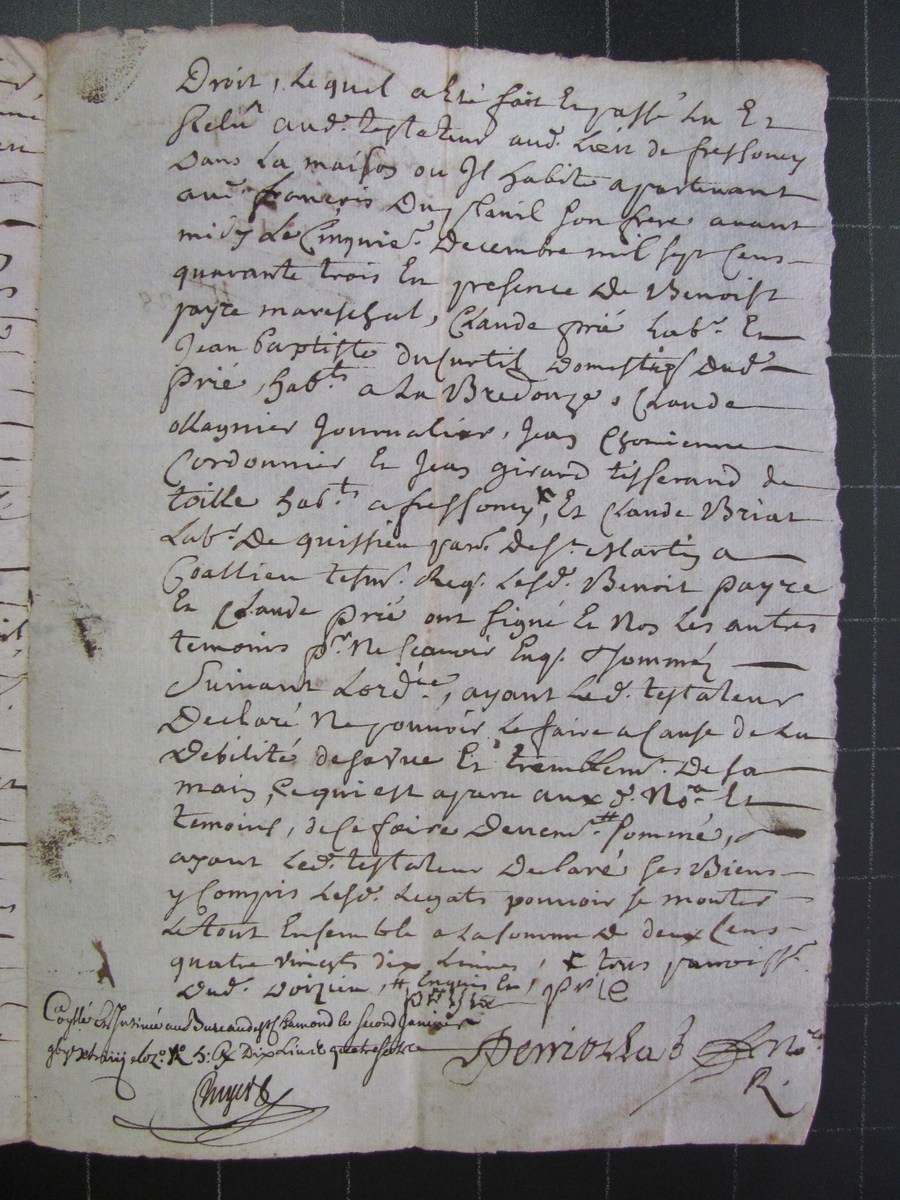 Droit, Lequel a Eté fait Et passé Lu Et
Relu aud. testateur aud. Lieu de fressoney
Dans La maison ou Jl habite apartenant
aud. françois Duysteuil son frere avant
midy Le Cinquie. Decembre mil sept Cens
quarante trois En presence De Benoist
payre mareschal, Claude prié Labr. Et
Jean baptiste ducurtil Domestiq Dud.
Prié, habts a La Bredouze, Claude
Magnier Journalier, Jean Chomienne
Cordonnier Et Jean girard tisserand de
toille habts a fressoney, Et Claude Briat
Labr. De quissieu parr. De st. Martin a
Coallieu tesm. Req. Lesd. Benoit payre
Et Claude Prié ont signé Et Non Les autres
temoins pr. Ne scavoir Enq. Et sommés
Suivant Lordce, ayant Led. testateur
Declaré Ne pouvoir Le faire a Cause de La
Debilité de sa vue Et tremblemt. De sa
main, Ce qui est aparu aux d. Nore Et
temoins, de Ce faire Deuemt. sommé,
ayant Led. testateur Declaré ses Biens
y Compris Lesd. Legats pouvoir se monter
Le tout Ensemble a La somme De deux Cens
quatre vingts dix Livres, x tous parroisse
Dud. Doizieu, # Enquis Et,
payre prie
Coñllé Et Insinué au Bureau de st Chamond le second Janvier
R. Dix Livres quatre
R.